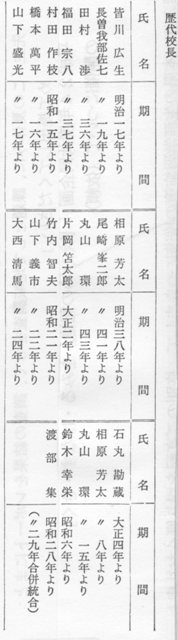 歴代校長
氏名
期間
皆川広生 明治一七年より
長曽我部佐七 〃一九年より
田村渉 〃三六年より
福田宗八 〃三七年より
村田作枝 昭和一五年より
橋本萬平 〃一六年より
山下盛光 〃一七年より
期間
相原芳太 明治三八年より
尾崎峯二郎 〃四一年より
丸山環 〃四三年より
片岡笘太郎 大正二年より
竹内智夫 昭和二一年より
山下義市 〃二二年より
大西清馬 〃二四年より
氏名
期間
石丸勘蔵 大正四年より
相原芳太 〃八年より
丸山環 〃一五年より
鈴木幸栄 昭和六年より
渡部集 昭和二八年より
(〃二九年合併統合)